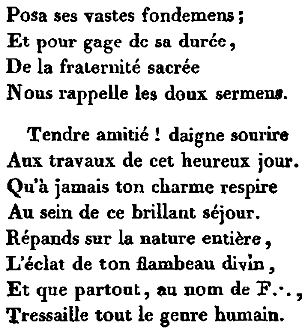 Posa ses vastes fondemens ;
Et pour gage de sa durée,
De la fraternité sacrée
Nous rappelle les doux sermens.
Tendre amitié ! daigne sourire
Aux travaux de cet heureux jour.
Qu'à jamais ton charme respire
Au sein de ce brillant séjour.
Répands sur la nature entière,
L'éclat de ton flambeau divin,
Et que partout, au nom de F.·.,
Tressaille tout le genre humain.